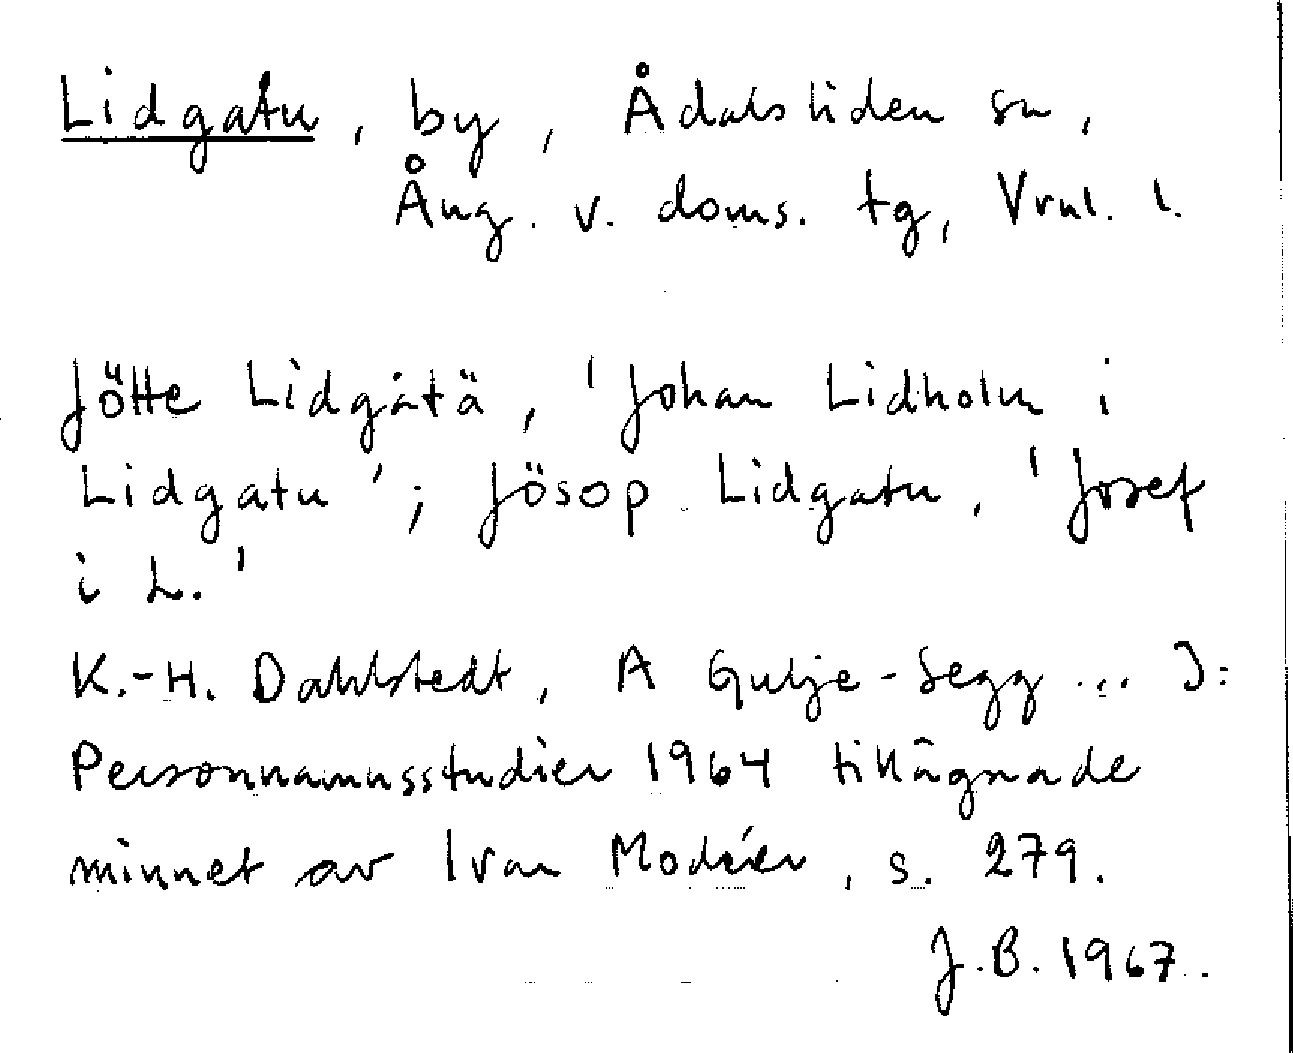 Lidgatu, by, Ådalsliden sn,
Ång. v. doms. tg, Vrnl. l.
Jötte Lidgåtä, 'Johan Lidholm i
Lidgatu'; Jösop Lidgatu, 'Josef
i L.'
K.-H. Dahlstedt, A Gulje-Segg ... I:
Personnamnsstudier 1964 tillägnade
minnet av Ivar Modéer, s. 279.
J.B. 1967.